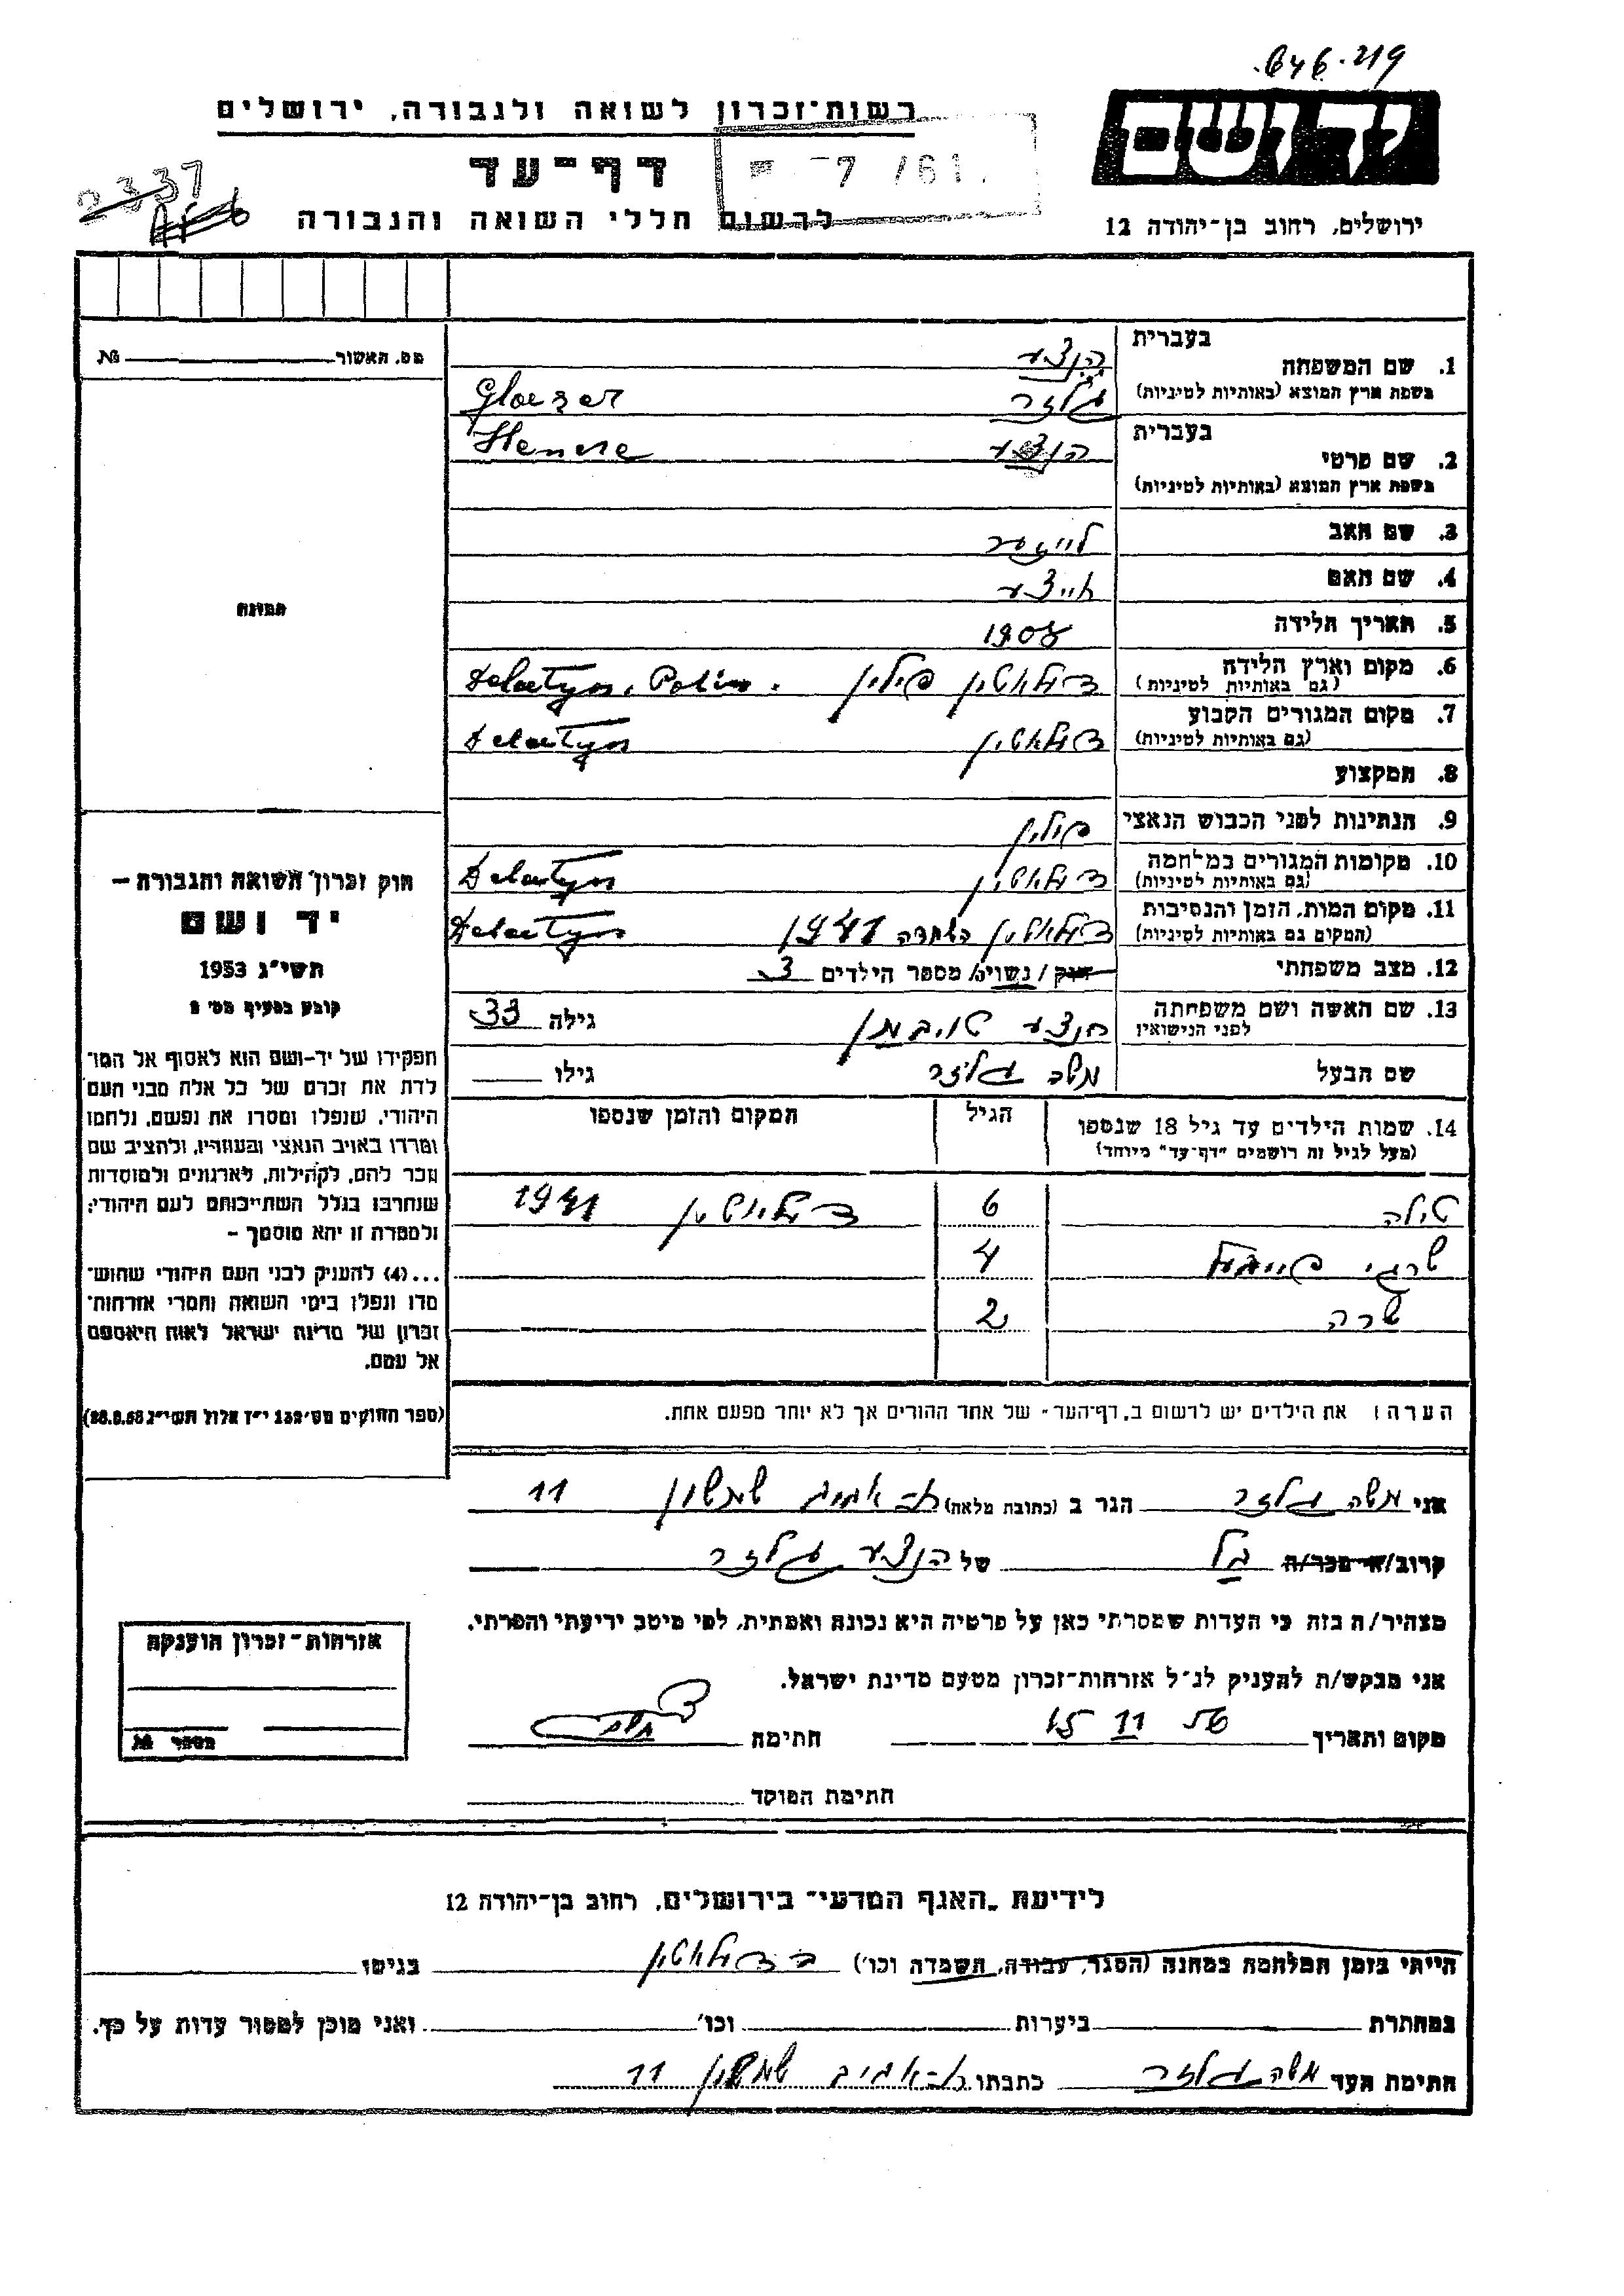 646.219
יד ושם
רשות־זכרון לשואה ולגבורה, ירושלים
דף־עד
7 /61
2337
לרשום חללי השואה והגבורה
ירושלים, רחוב בן־יהודה 12
מס. האשור № 
בעברית
1. שם המשפחה
בשפת ארץ המוצא (באותיות לטיניות)
גלזר Glaezer
בעברית
2. שם פרטי הנצע Hence
בשפת ארץ המוצא (באותיות לטיניות)
3. שם האב
4. שם האם
תמונה
5. תאריך הלידה 1908
6. מקום וארץ הלידה דולאטין פולין Delatyn, Polin.
(גם באותיות לטיניות)
7. מקום המגורים הקבוע דולאטין Delatyn
(גם באותיות לטיניות)
8. המקצוע
9. הנתינות לפני הכבוש הנאצי פולין
10. מקומות המגורים במלחמה דולאטין Delatyn
(גם באותיות לטיניות)
11. מקום המות, הזמן והנסיבות דולאטין השמדה 1941 Delatyn
(המקום גם באותיות לטיניות)
12. מצב משפחתי רווק / נשוי/ה מספר הילדים 3
13. שם האשה ושם משפחתה הנצע טויבמן גילה 33
לפני הנישואין
שם הבעל משה גלזר גילו
14. שמות הילדים עד גיל 18 שנספו הגיל המקום והזמן שנספו
(מעל לגיל זה רושמים "דף־עד" מיוחד)
טילה 6 דולאטין 1941
שרגי פייבל 4
שרה 2
חוק זכרון השואה והגבורה –
יד ושם
תשי"ג 1953
קובע בסעיף מס' 2
תפקידו של יד-ושם הוא לאסוף אל המו־
לדת את זכרם של כל אלה מבני העם
היהודי, שנפלו ומסרו את נפשם, נלחמו
ומרדו באויב הנאצי ובעוזריו, ולהציב שם
וזכר להם, לקהילות, לארגונים ולמוסדות
שנחרבו בגלל השתייכותם לעם היהודי;
ולמטרה זו יהא מוסמך –
...(4) להעניק לבני העם היהודי שהוש־
מדו ונפלו בימי השואה והמרי אזרחות־
זכרון של מדינת ישראל לאות היאספם
אל עמם.
(ספר החוקים מס' 132 י"ז אלול תשי"ג 28.8.53)
הערה: את הילדים יש לרשום ב„דף־העד" של אחד ההורים אך לא יותר מפעם אחת.
אני משה גלזר הגר ב (כתובת מלאה) ת־אביב שמשון 11
קרוב/ה מכר/ה בעל של הנצע גלזר
מצהיר/ה בזה כי העדות שמסרתי כאן על פרטיה היא נכונה ואמתית, לפי מיטב ידיעתי והכרתי.
אני מבקש/ת להעניק לנ"ל אזרחות־זכרון מטעם מדינת ישראל.
מקום ותאריך 15 11 חתימה
חתימת הפוקד
אזרחות־זכרון הוענקה
מספר №
לידיעת „האגף המדעי" בירושלים, רחוב בן־יהודה 12
הייתי בזמן המלחמה במחנה (הסגר, עבודה, השמדה וכו') בדולאטין בגיטו
במחתרת ביערות וכו' ואני מוכן למסור עדות על כך.
חתימת העד משה גלזר כתבתו ת־אביב שמשון 11